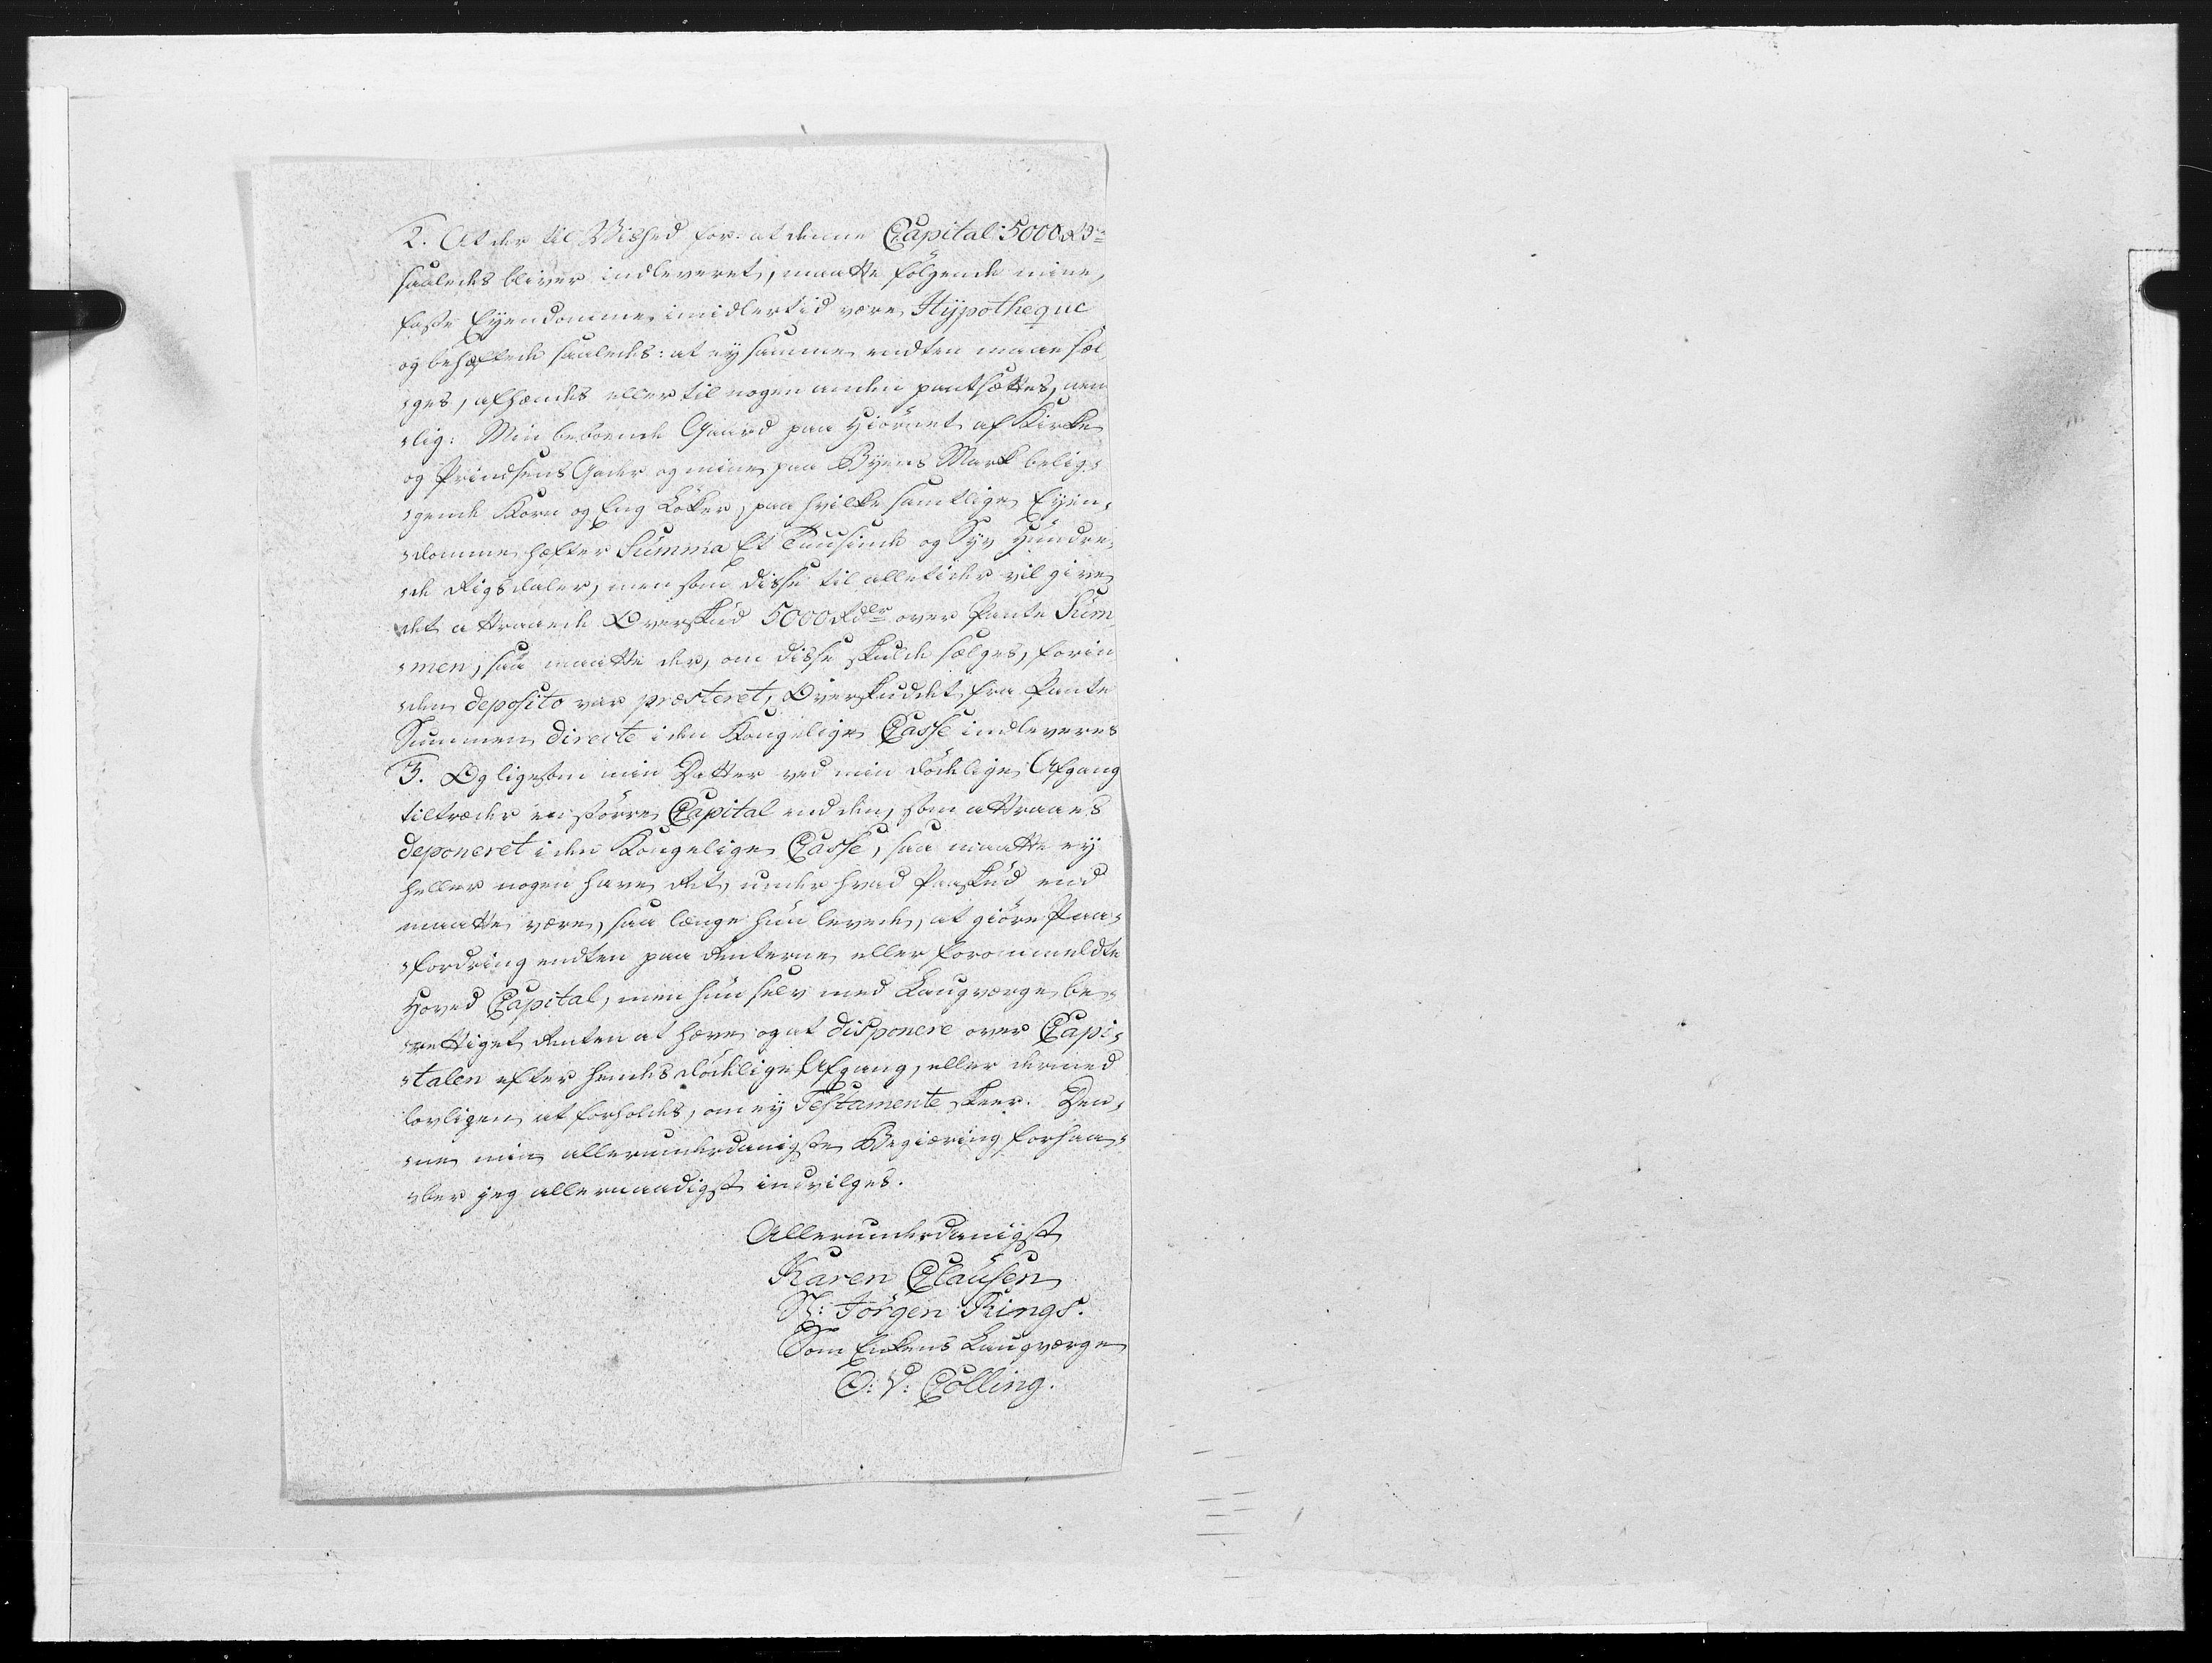 2. At der til Vished for: at denne Capital 5000 Rdr
saaledes bliver indleveret, maatte følgende mine
faste Eyendomme imidlertid være Hypotheque
og behæftede saaledes: at ey samme endten maae sæl
ges, afhændes eller til nogen anden pantsættes, nem
lig: Min beboende Gaard paa Hiörnet af Kirke
og Prindsens Gader og mine paa Byens Mark belig-
gende Korn og Eng Løkker, paa hvilke samtlige Eyen-
domme hæfter Summa Et Tuusinde og Syv Hundre-
de Rigsdaler, men som disse til alle tider vil give
det attraaede Overskud 5000 Rdlr over Pante Sum
men, saa maatte der, om disse skulde sælges, forin
den deposito var præsteret, Overskuddet fra Pante
Summen directe i den Kongelige Casse indleveres
3. Og ligesom min Datter ved min dödelige Afgang
tiltræder en større Capital end den, som attraaes
deponeret i den Kongelige Casse, saa maatte ey
heller nogen have Ret, under hvad Paaskud end
maatte være, saa længe hun levede, at giöre Paa-
fordring endten paa Renterne eller forommeldte
Hoved Capital, men hun selv med Laugværge be-
rettiget Renten at hæve og at disponere over Capi-
talen efter hendes dödelige Afgang, eller dermed
lovligen at forholdes, om ey Testamente skeer. Den-
ne min allerunderdanigste Begiæring forhaa-
ber jeg allernaadigst indvilges.
Allerunderdanigst
Karen Clausen
Sl: Jörgen Rings.
Som Enkens Laugværge
O: V: Colling.